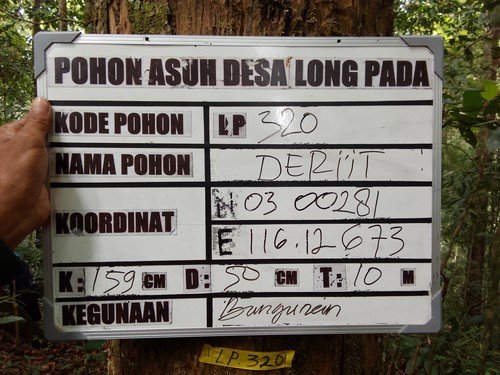 POHON ASUH DESA LONG PADA
KODE POHON LP 320
NAMA POHON DERIIT
KOORDINAT N 03 00281
E 116.12 673
K: 159 CM D: 50 CM T: 10 M
KEGUNAAN Bangunan
LP 320